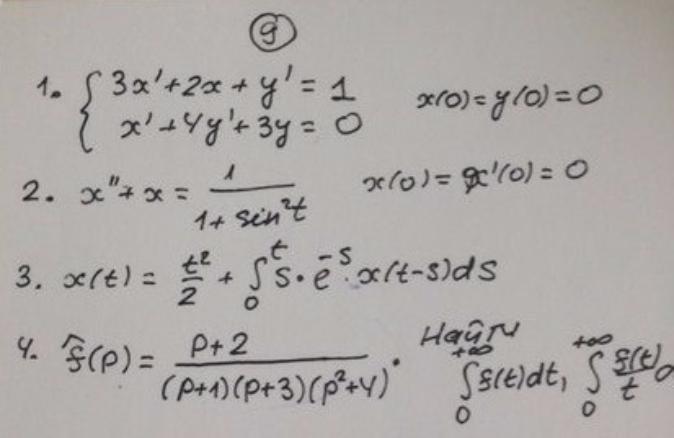 9
1. { 3x' + 2x + y' = 1 x(0) = y(0) = 0
x' + 4y' + 3y = 0
2. x'' + x = 1 / (1 + sin²t) x(0) = x'(0) = 0
3. x(t) = t²/2 + ∫₀ᵗ s · e⁻ˢ · x(t-s)ds
4. f̂(p) = (p+2) / ((p+1)(p+3)(p²+4)) . Найти ∫₀⁺∞ f(t)dt, ∫₀⁺∞ f(t)/t d